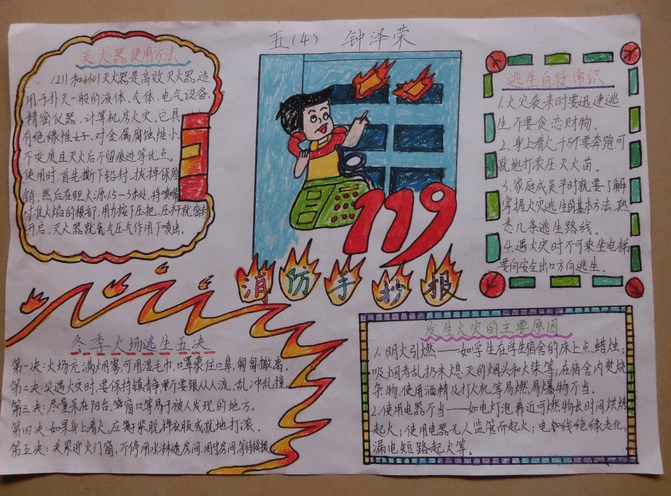 五(4) 钟泽荣
灭火器使用方法
1211和1301灭火器是高效灭火器,适
用于扑灭一般的液体、气体、电气设备、
精密仪器、计算机房火灾。它具
有绝缘性好、对金属腐蚀性小、
不变质且灭火后不留痕迹等优点。
使用时,首先撕下铅封,拔掉保险
销,然后在距火源1.5-3米处,将喷嘴
对准火焰的根部,用力按下压把,压杆就
开启。灭火器就氮气压气作用下喷出。
119
消防手抄报
逃生自救常识
1.火灾袭来时要迅速逃
生,不要贪恋财物。
2.身上着火,千万不要奔跑可
就地打滚压灭火苗。
3.家庭成员平时就要了解
掌握火灾逃生的基本方法,熟
悉几条逃生路线。
4.遇火灾时不可乘坐电梯
要向安全出口方向逃生。
冬季火场逃生五决
第一决:火场充满烟雾,可用湿毛巾、口罩蒙住口鼻,匍匐撤离。
第二决:突遇火灾时,要保持镇静,千万不要跟从人流、乱冲乱撞。
第三决:尽量呆在阳台、窗口等易于被人发现的地方。
第四决:如果身上着火,应赶紧脱掉衣服或就地打滚。
第五决:关紧近火门窗,不停用水淋透房间,固守房间等待救援。
发生火灾的主要原因
1.明火引燃——如学生在学生宿舍的床上点蜡烛;
吸烟者乱扔未熄灭的烟头和火柴等,在宿舍内焚烧
杂物,使用酒精及打火机等易燃易爆物不当。
2.使用电器不当——如电灯泡靠近可燃物长时间烘烤
起火;使用电器无人监管而起火;电线绝缘老化,
漏电短路起火等。